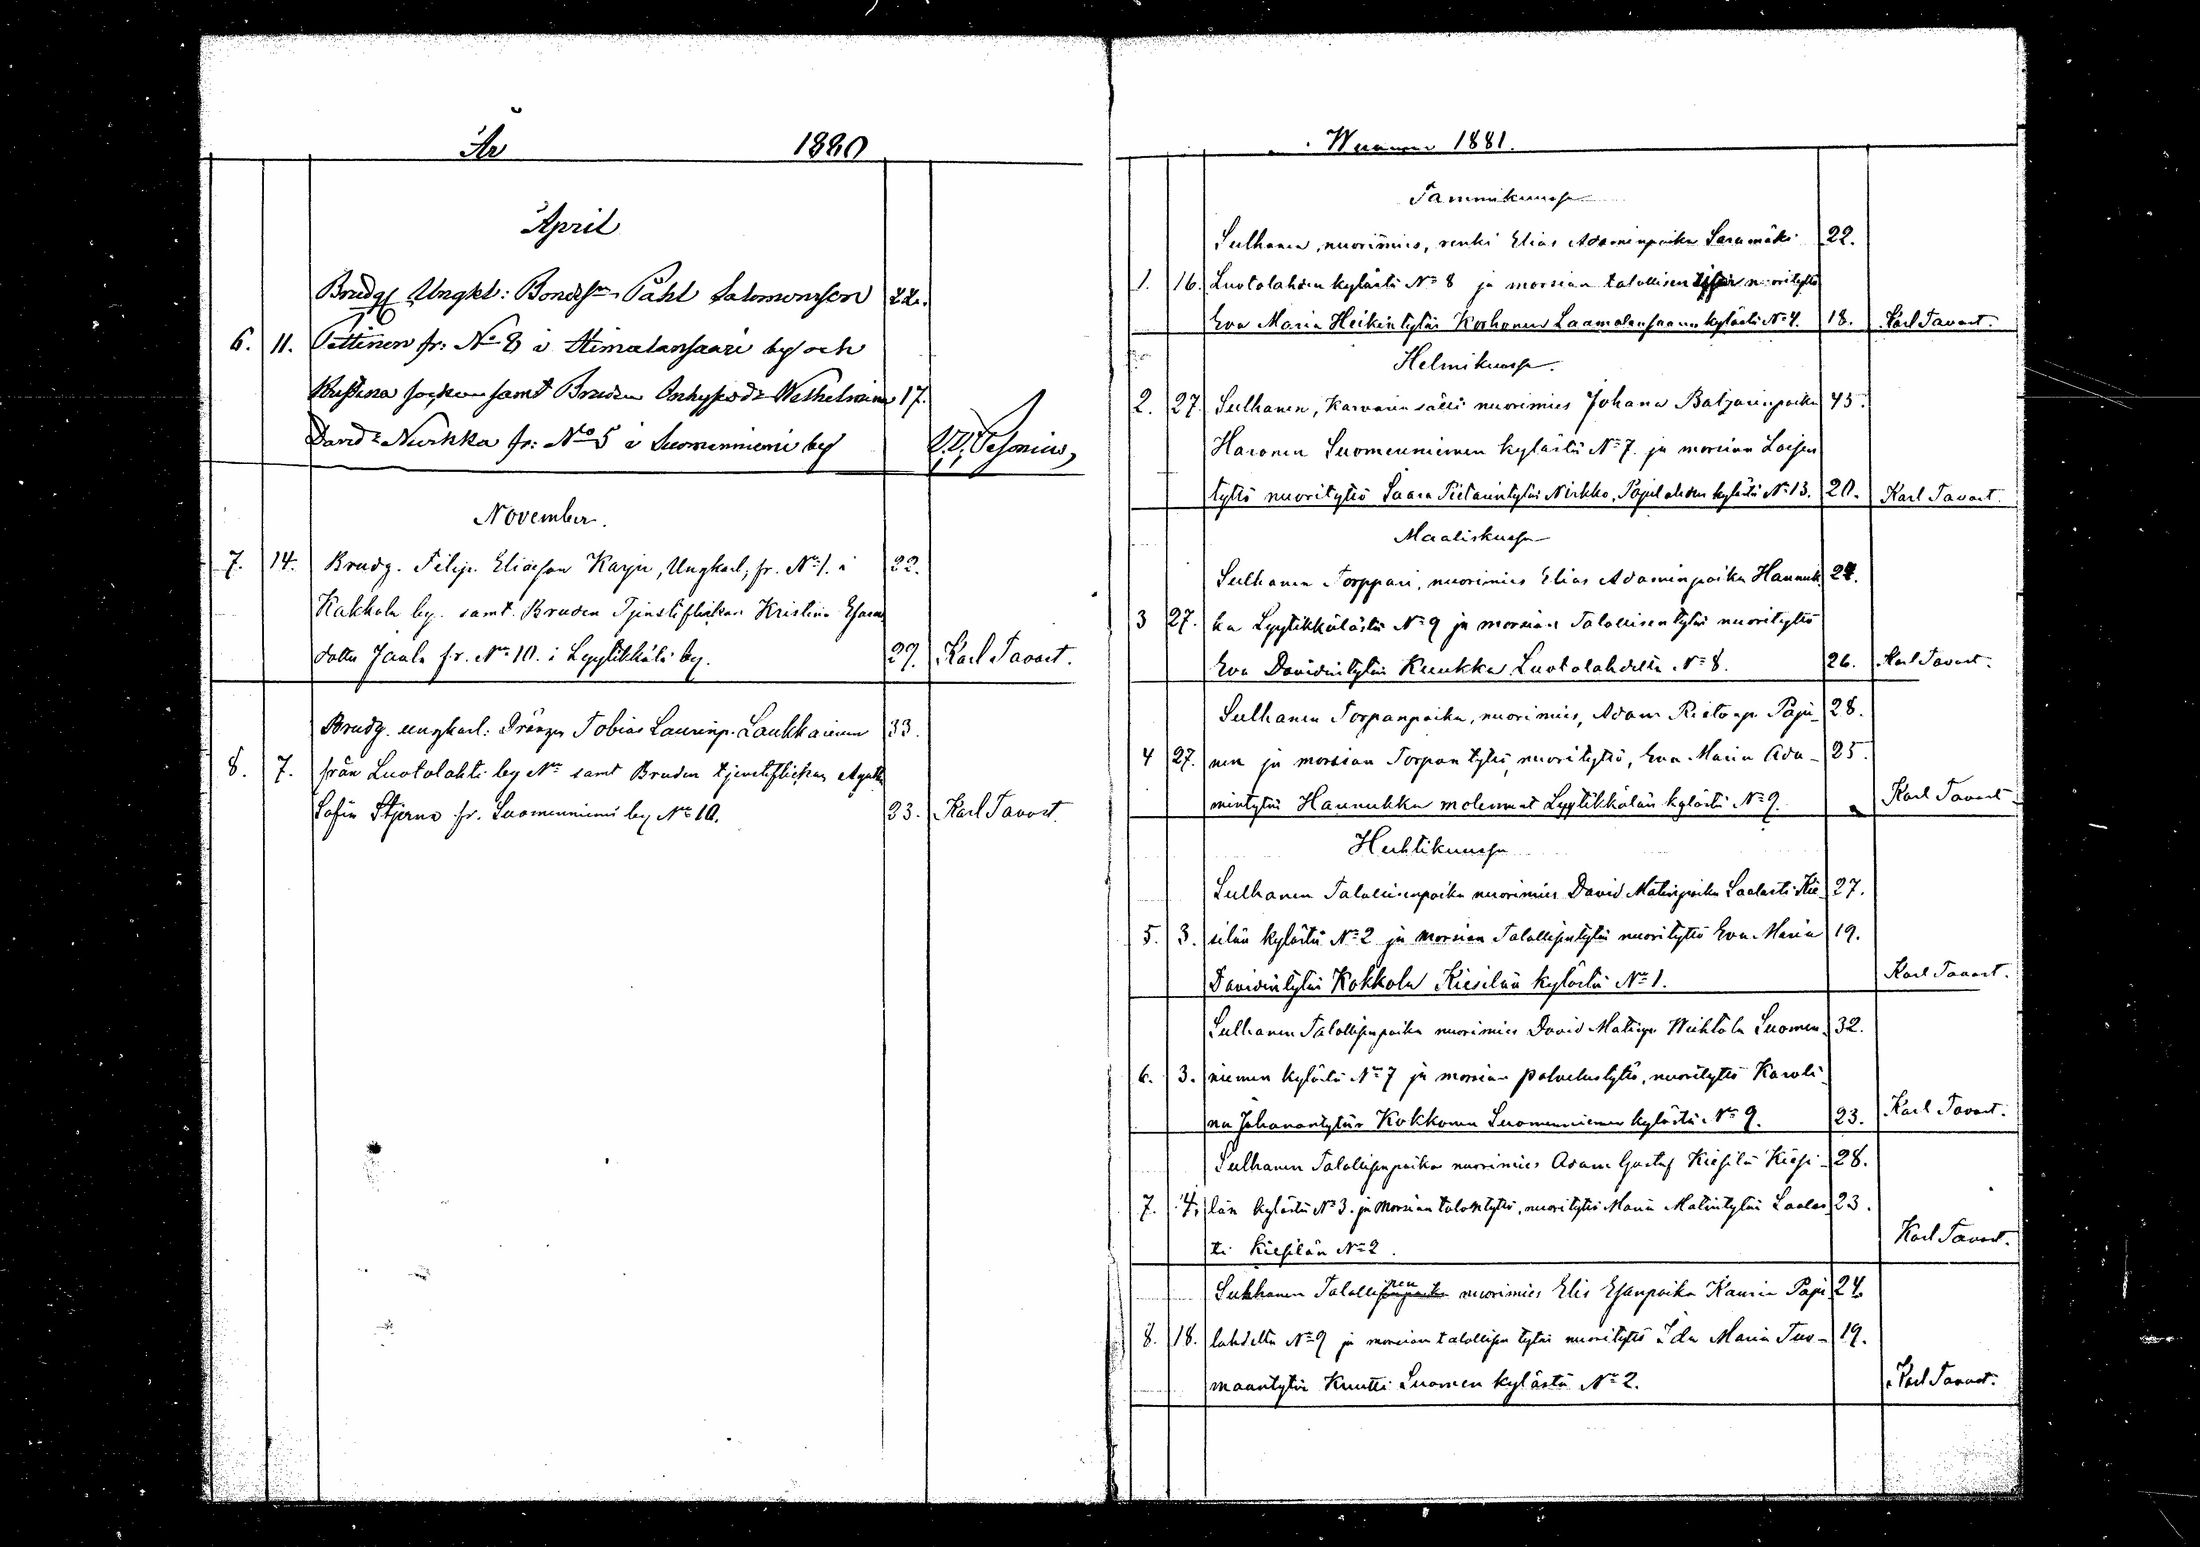 År 1880
April
Brudg. Ungkl: Bondesn Påhl Salomonsson 22.
6. 11. Pettinen fr: No 8 i Himalansaari by och
Kristina socken samt Bruden Wilhelmina 17.
Davidr Nurkka fr: No 5 i Suomenniemi by
November.
7. 14. Brudg. Filip Eliasson Karju, Ungkarl, fr. No 1. i 22.
Kakkola by. samt Bruden Tjensteflickan Kristina Esaias
dotter Jaala fr. No 10. i Lyytikkälä by. 29. Karl Tavast.
Brudg. ungkarl: Drängen Tobias Laurinp. Laukkainen 33.
8. 7. från Luotolahti by No samt Bruden tjensteflickan Agatha
Sofia Stjerna fr. Suomenniemi by No 10. 23. Karl Tavast.
Wuonna 1881.
Tammikuussa
Sulhanen, nuorimies, renki Elias Adaminpoika Saramäki 22.
1. 16. Luotolahden kylästä No 8 ja morsian talollisen tytär nuorityttö
Eva Maria Heikintytär Korhonen Laamalansaaren kylästä No 4. 18. Karl Tavast.
Helmikuussa.
2. 27. Sulhanen, Karvarin sälli nuorimies Johana Baltzarinpoika 45.
Haronen Suomenniemen kylästä No 7. ja morsian Loisen
tyttö nuorityttö Saara Pietarintytär Nirkko, Pajulahden kylästä No 13. 20. Karl Tavast.
Maaliskuussa
Sulhanen Torppari, nuorimies Elias Adaminpoika Hannuk 24.
3 27. ka Lyytikkälästä No 9 ja morsian Talollisen tytär nuorityttö
Eva Davidintytär Kuukka Luotolahdelta No 8. 26. Karl Tavast.
Sulhanen Torpanpoika, nuorimies, Adam Ristonp. Paju- 28.
4 27. nen ja morsian Torpan tyttö, nuorityttö, Eva Maria Ada- 25.
mintytär Hannukka molemmat Lyytikkälän kylästä No 9. Karl Tavast.
Huhtikuussa
Sulhanen Talollisenpoika nuorimies David Matinpoika Laalasti Kie 27.
5. 3. silän kylästä No 2 ja morsian Talollisen tytär nuorityttö Eva Maria 19.
Davidintytär Kokkola Kiesilän kylästä No 1. Karl Tavast.
Sulhanen Talollisenpoika nuorimies David Matinp. Wiihtola Suomen- 32.
6. 3. niemen kylästä No 7 ja morsian palvelustyttö, nuorityttö Karoli-
na Johanantytär Kokkonen Suomenniemen kylästä No 9. 23. Karl Tavast.
Sulhanen Talollisenpoika nuorimies Adam Gustaf Kiesilä Kiesi- 28.
7. 4. län kylästä No 3. ja morsian talontyttö, nuorityttö Maria Matintytär Laalas 23.
ti Kiesilän No 2. Karl Tavast.
Sulhanen Talollinen nuorimies Elis Esanpoika Kauria Paju 24.
8. 18. lahdelta No 9 ja morsian talollisen tytär nuorityttö Ida Maria Tuo- 19.
maantytär Kuutti Suomen kylästä No 2. Karl Tavast.